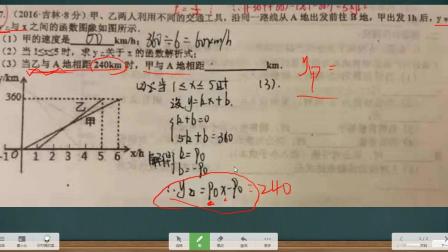 (2016·吉林·8分)甲、乙两人利用不同的交通工具,沿同一路线从A地出发前往B地,甲出发1h后,y
x之间的函数图象如图所示.
(1)甲的速度是 60 km/h; 360÷6=60km/h
(2)当1≤x≤5时,求y乙关于x的函数解析式;
(3)当乙与A地相距240km时,甲与A地相距 km.
y/km
360
乙
甲
-1O 1 2 3 4 5 6 x/h
(2)当1≤x≤5时
设y=kx+b.
k+b=0
5k+b=360
解得 k=90
b=-90
∴y乙=90x-90=240
(3).
y甲=